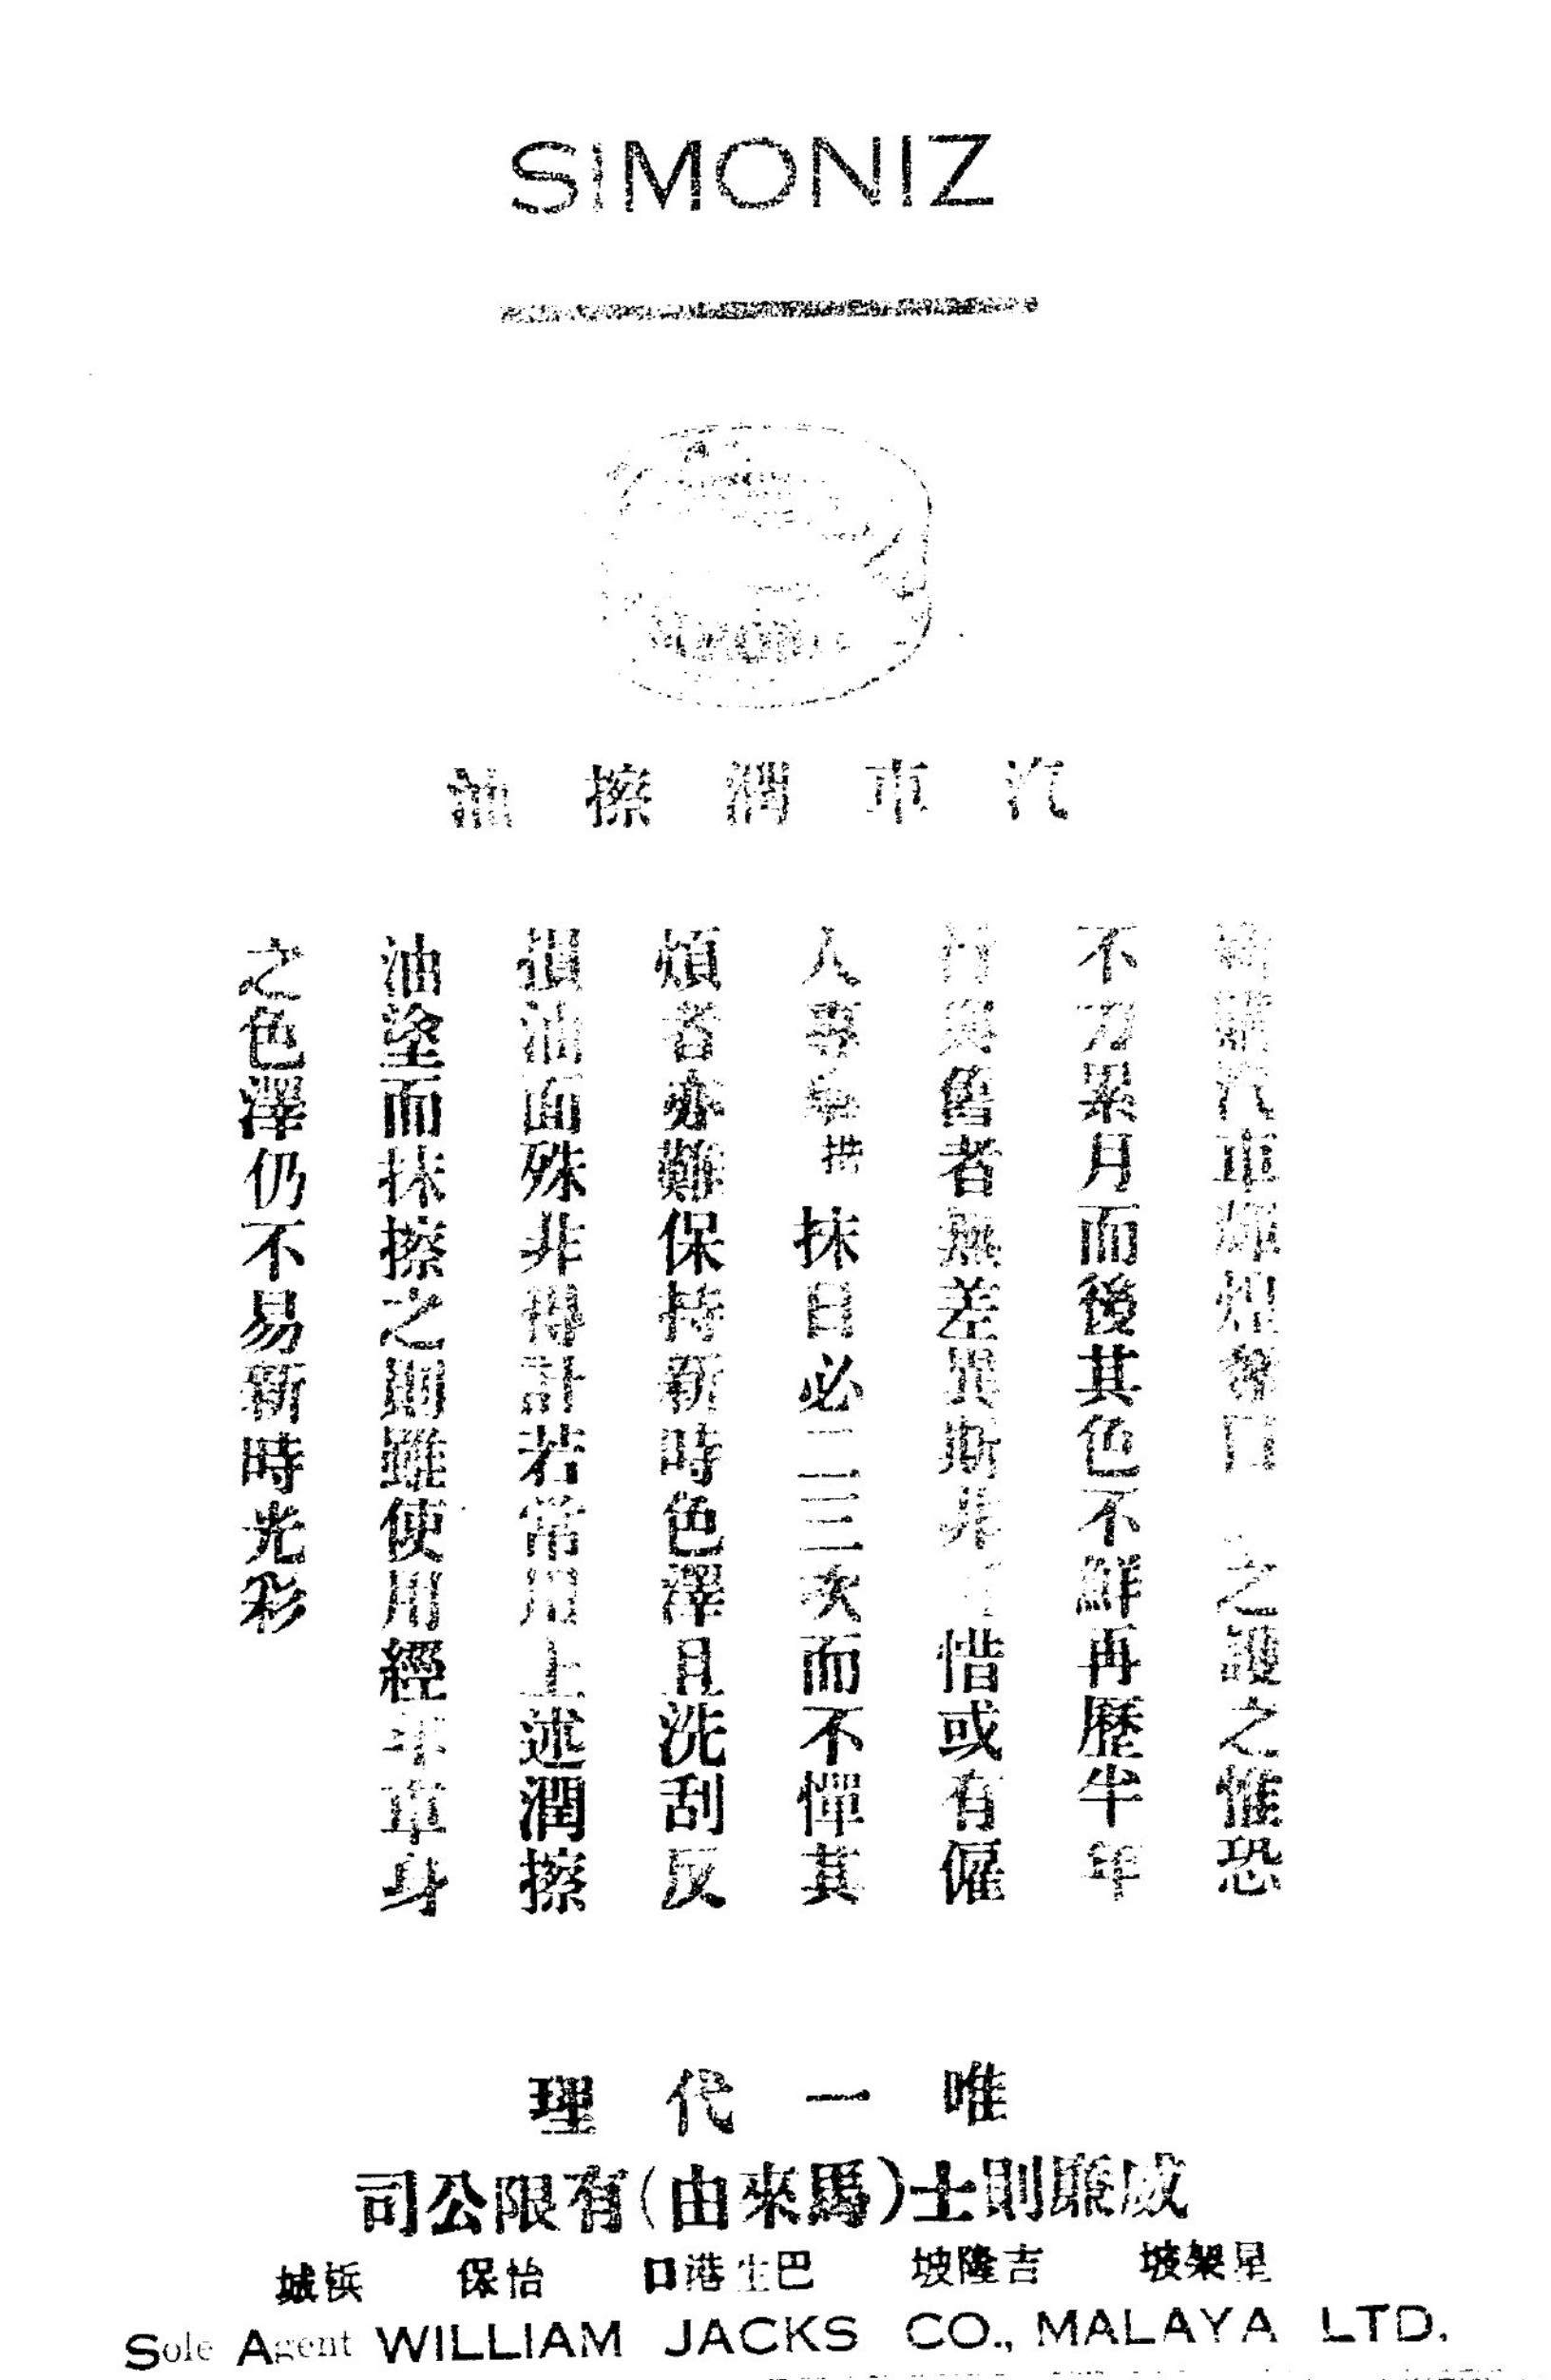 SIMONIZ
SIMONIZ
汽車潤擦油
新購汽車輝煌奪目 之護之惟恐
不力累月而後其色不鮮再歷半年
行與舊者無差異斯非 惜或有僱
人專 揩抹日必二三次而不憚其
煩者亦難保持新時色澤且洗刮反
損油面殊非得計若常用上述潤擦
油塗而抹擦之則雖使用經年車身
之色澤仍不易新時光彩
唯一代理
威廉則士(馬來由)有限公司
星架坡 吉隆坡 巴生港口 怡保 檳城
Sole Agent WILLIAM JACKS CO., MALAYA LTD.